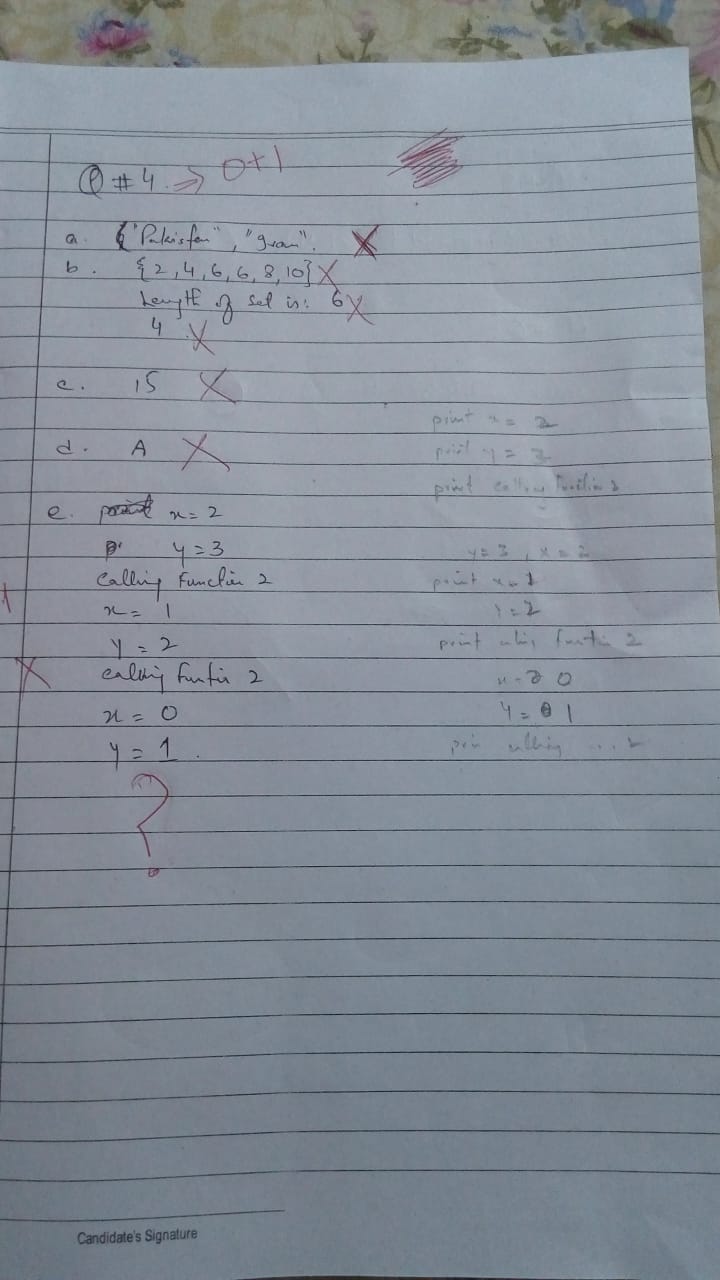 Q # 4. → 0+1
a. {"Pakistan", "Iran".
b. {2,4,6,6,8,10}
Length of set is: 6
4
c. 15
d. A
e. x = 2
y = 3
Calling Function 2
x = 1
y = 2
calling 2
x = 0
y = 1.
?
print x = 2
print y =
print calling Function 2
y = 3, x = 2
print x = 1
y = 2
print 2
x = 0
y = 1
calling ... 2
Candidate's Signature